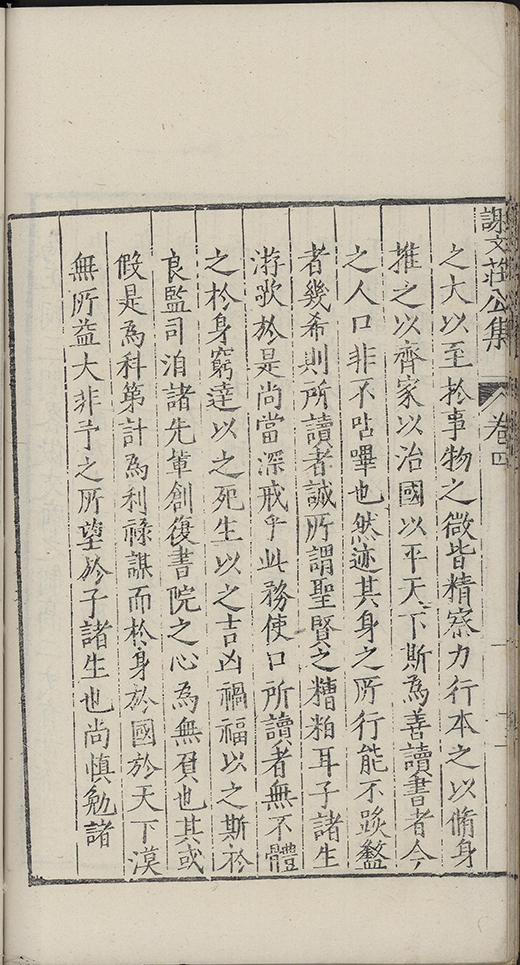 謝文莊公集
卷四
之大以至於事物之微皆精察力行本之以脩身
推之以齊家以治國以平天下斯為善讀書者今
之人口非不呫嗶也然迹其身之所行能不踐盭
者幾希則所讀者誠所謂聖賢之糟粕耳子諸生
游歌於是尚當深戒乎此務使口所讀者無不體
之於身窮達以之死生以之吉凶禍福以之斯於
良監司洎諸先輩創復書院之心為無負也其或
假是為科第計為利祿謀而於身於國於天下漠
無所益大非予之所望於子諸生也尚慎勉諸